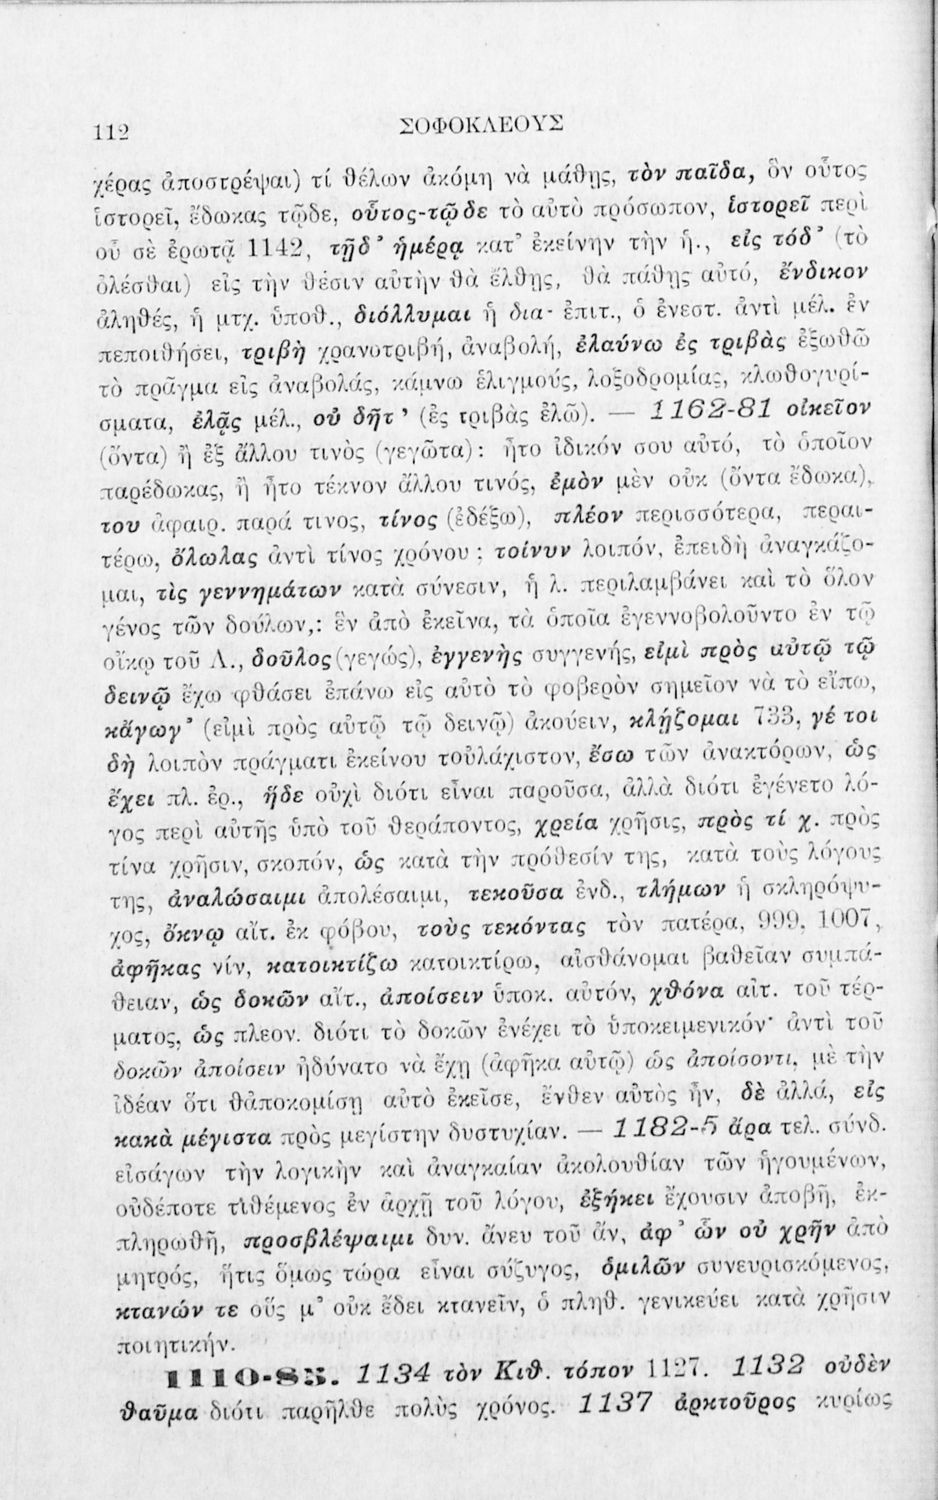 112 ΣΟΦΟΚΛΕΟΥΣ
χέρας ἀποστρέψαι) τί θέλων ἀκόμη νὰ μάθῃς, τὸν παῖδα, ὃν οὗτος
ἱστορεῖ, ἔδωκας τῷδε, οὗτος-τῷδε τὸ αὐτὸ πρόσωπον, ἱστορεῖ περὶ
οὗ σὲ ἐρωτᾷ 1142, τῇδ᾽ ἡμέρᾳ κατ᾽ ἐκείνην τὴν ἡ., εἰς τόδ᾽ (τὸ
ὀλέσθαι) εἰς τὴν θέσιν αὐτὴν θὰ ἔλθῃς, θὰ πάθῃς αὐτό, ἔνδικον
ἀληθές, ἡ μτχ. ὑποθ., διόλλυμαι ἡ δια- ἐπιτ., ὁ ἐνεστ. ἀντὶ μέλ. ἐν
πεποιθήσει, τριβὴ χρανοτριβή, ἀναβολή, ἐλαύνω ἐς τριβὰς ἐξωθῶ
τὸ πρᾶγμα εἰς ἀναβολάς, κάμνω ἑλιγμούς, λοξοδρομίας, κλωθογυρί-
σματα, ἐλᾷς μέλ., οὐ δῆτ᾽ (ἐς τριβὰς ἐλῶ). — 1162-81 οἰκεῖον
(ὄντα) ἢ ἐξ ἄλλου τινὸς (γεγῶτα): ἦτο ἰδικόν σου αὐτό, τὸ ὁποῖον
παρέδωκας, ἢ ἦτο τέκνον ἄλλου τινός, ἐμὸν μὲν οὐκ (ὄντα ἔδωκα),
του ἀφαιρ. παρά τινος, τίνος (ἐδέξω), πλέον περισσότερα, περαι-
τέρω, ὄλωλας ἀντὶ τίνος χρόνου; τοίνυν λοιπόν, ἐπειδὴ ἀναγκάζο-
μαι, τὶς γεννημάτων κατὰ σύνεσιν, ἡ λ. περιλαμβάνει καὶ τὸ ὅλον
γένος τῶν δούλων,: ἓν ἀπὸ ἐκεῖνα, τὰ ὁποῖα ἐγεννοβολοῦντο ἐν τῷ
οἴκῳ τοῦ Λ., δοῦλος (γεγώς), ἐγγενὴς συγγενής, εἰμὶ πρὸς αὐτῷ τῷ
δεινῷ ἔχω φθάσει ἐπάνω εἰς αὐτὸ τὸ φοβερὸν σημεῖον νὰ τὸ εἴπω,
κἄγωγ᾽ (εἰμὶ πρὸς αὐτῷ τῷ δεινῷ) ἀκούειν, κλῄζομαι 733, γέ τοι
δὴ λοιπὸν πράγματι ἐκείνου τοὐλάχιστον, ἔσω τῶν ἀνακτόρων, ὡς
ἔχει πλ. ἐρ., ἥδε οὐχὶ διότι εἶναι παροῦσα, ἀλλὰ διότι ἐγένετο λό-
γος περὶ αὐτῆς ὑπὸ τοῦ θεράποντος, χρεία χρῆσις, πρὸς τί χ. πρὸς
τίνα χρῆσιν, σκοπόν, ὡς κατὰ τὴν πρόθεσίν της, κατὰ τοὺς λόγους
της, ἀναλώσαιμι ἀπολέσαιμι, τεκοῦσα ἐνδ., τλήμων ἡ σκληρόψυ-
χος, ὄκνῳ αἰτ. ἐκ φόβου, τοὺς τεκόντας τὸν πατέρα, 999, 1007,
ἀφῆκας νίν, κατοικτίζω κατοικτίρω, αἰσθάνομαι βαθεῖαν συμπά-
θειαν, ὡς δοκῶν αἰτ., ἀποίσειν ὑποκ. αὐτόν, χθόνα αἰτ. τοῦ τέρ-
ματος, ὡς πλεον. διότι τὸ δοκῶν ἐνέχει τὸ ὑποκειμενικόν· ἀντὶ τοῦ
δοκῶν ἀποίσειν ἠδύνατο νὰ ἔχῃ (ἀφῆκα αὐτῷ) ὡς ἀποίσοντι, μὲ τὴν
ἰδέαν ὅτι θἀποκομίσῃ αὐτὸ ἐκεῖσε, ἔνθεν αὐτὸς ἦν, δὲ ἀλλά, εἰς
κακὰ μέγιστα πρὸς μεγίστην δυστυχίαν. — 1182-5 ἄρα τελ. σύνδ.
εἰσάγων τὴν λογικὴν καὶ ἀναγκαίαν ἀκολουθίαν τῶν ἡγουμένων,
οὐδέποτε τιθέμενος ἐν ἀρχῇ τοῦ λόγου, ἐξήκει ἔχουσιν ἀποβῆ, ἐκ-
πληρωθῆ, προσβλέψαιμι δυν. ἄνευ τοῦ ἄν, ἀφ᾽ ὧν οὐ χρῆν ἀπὸ
μητρός, ἥτις ὅμως τώρα εἶναι σύζυγος, ὁμιλῶν συνευρισκόμενος,
κτανών τε οὕς μ᾽ οὐκ ἔδει κτανεῖν, ὁ πληθ. γενικεύει κατὰ χρῆσιν
ποιητικήν.
1110-85. 1134 τὸν Κιθ. τόπον 1127. 1132 οὐδὲν
θαῦμα διότι παρῆλθε πολὺς χρόνος. 1137 ἀρκτοῦρος κυρίως